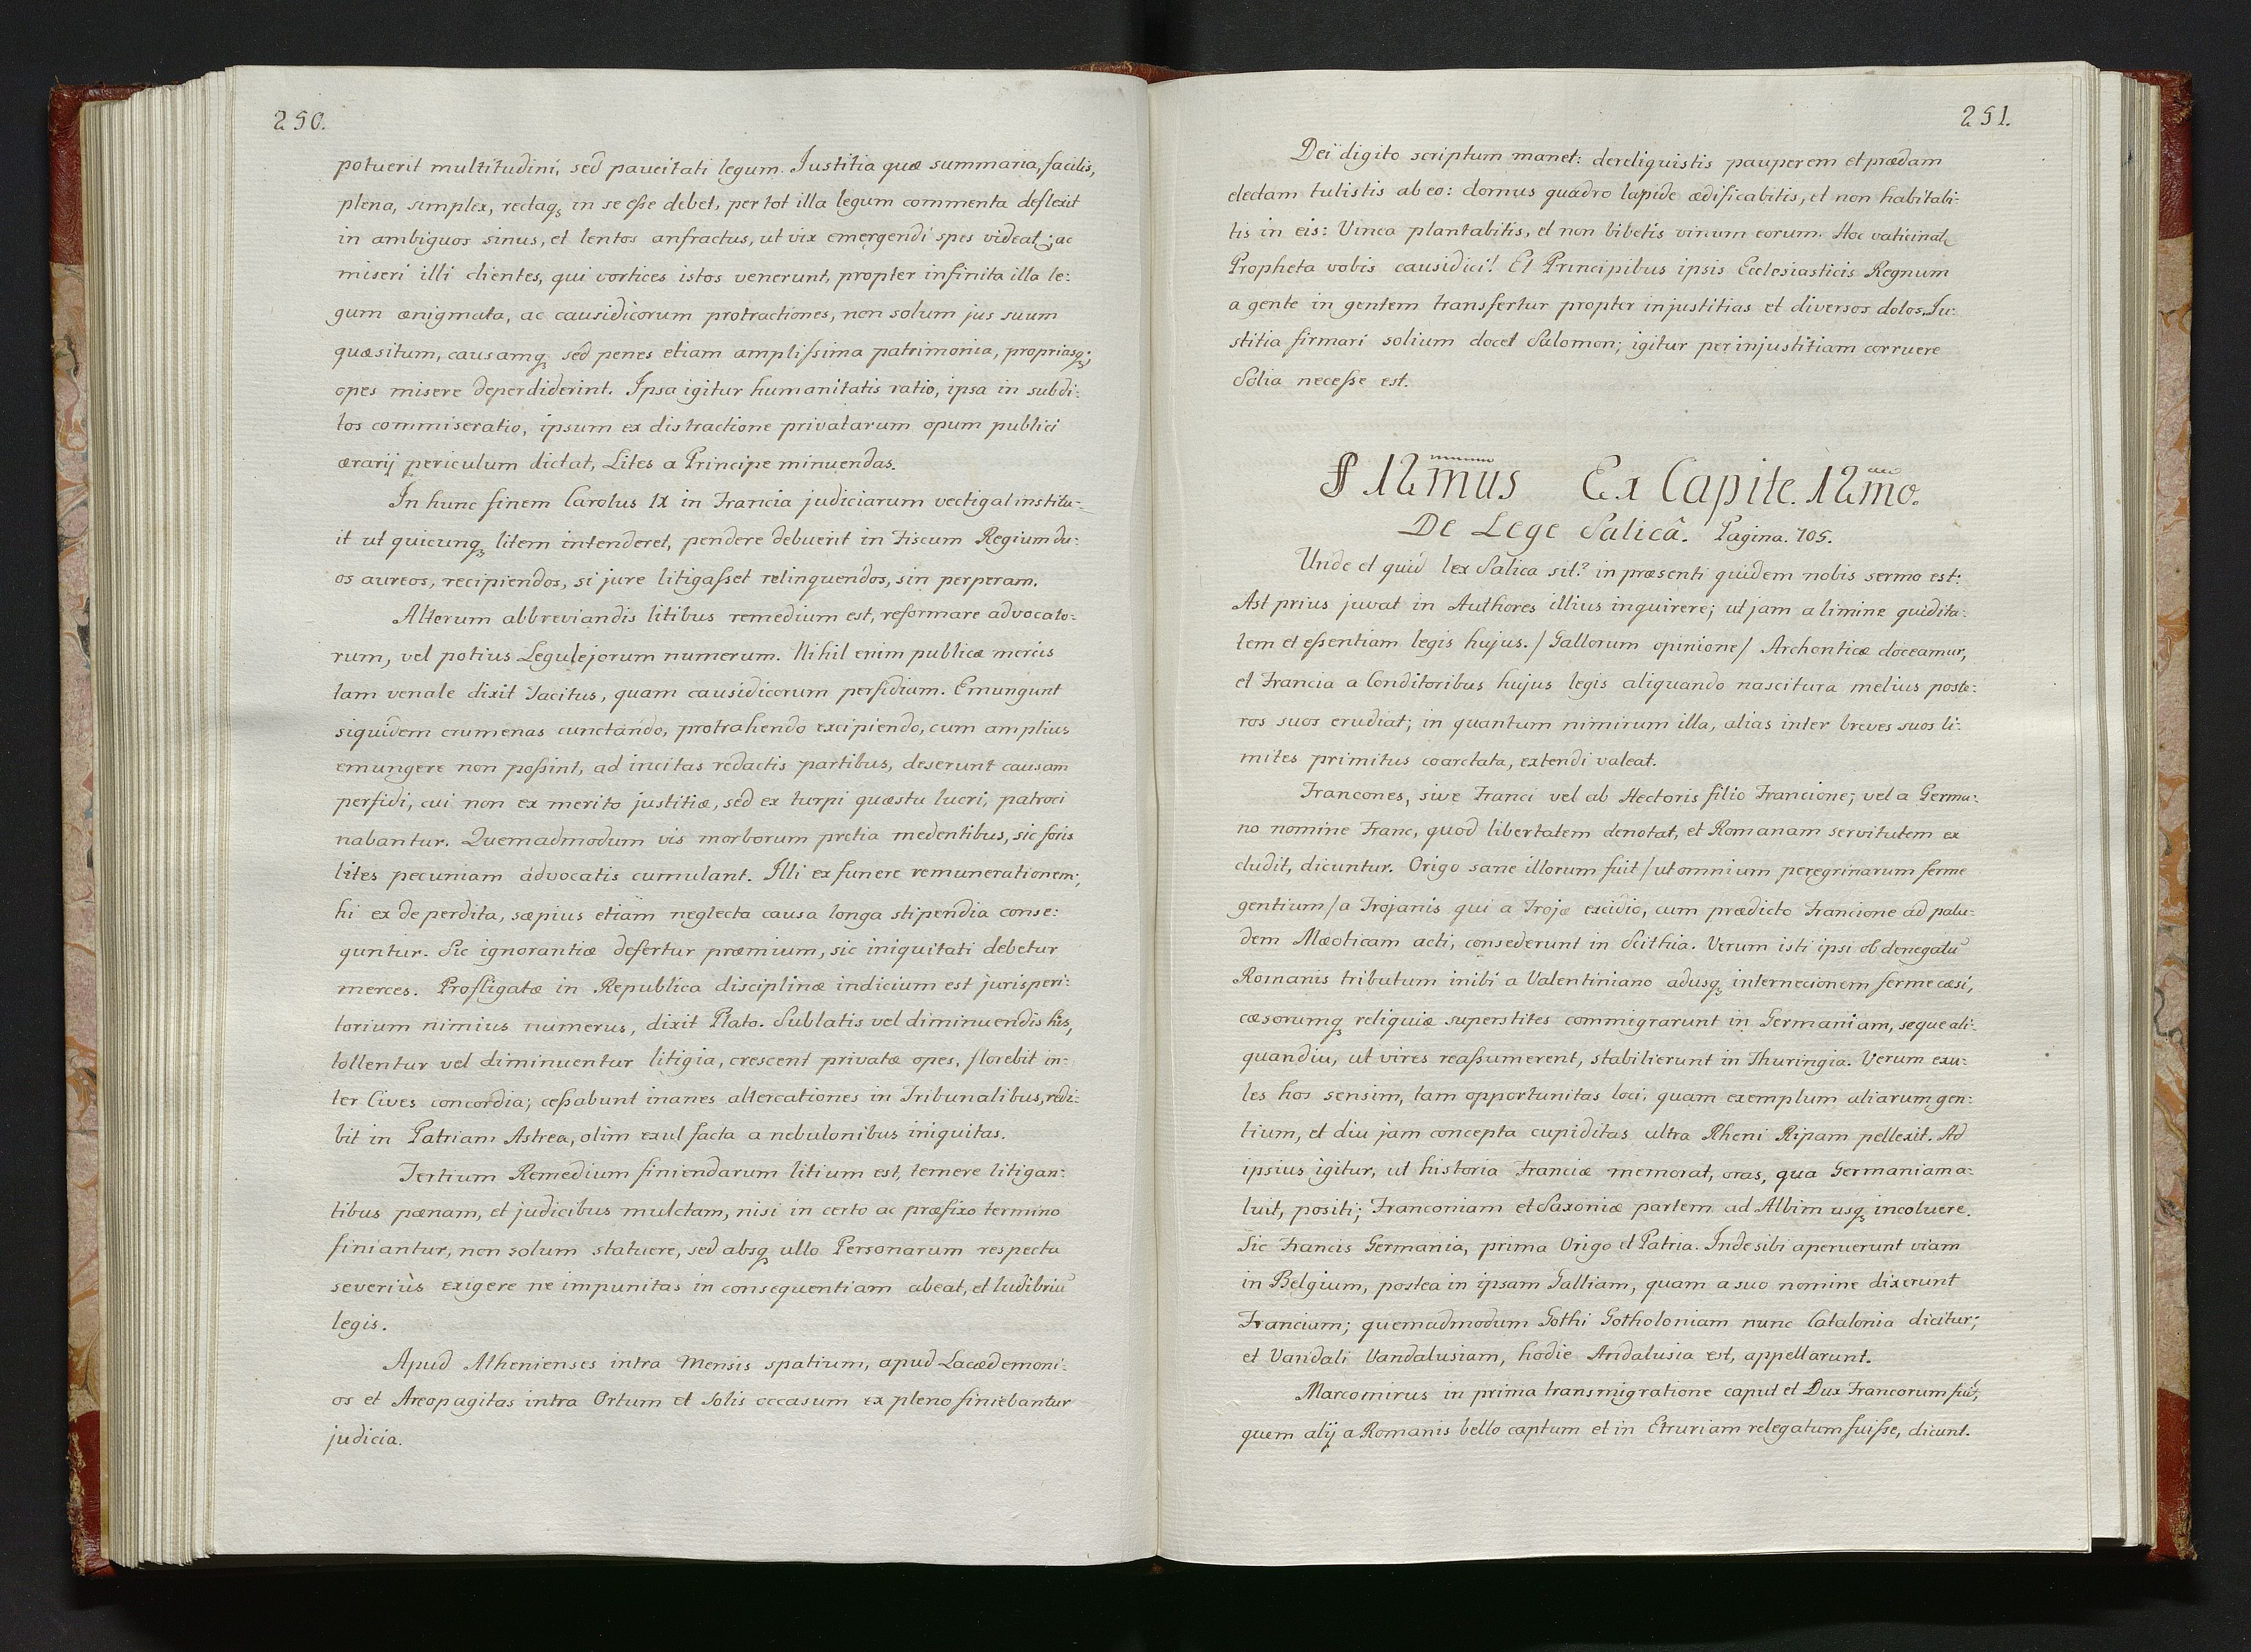 250.
potuerit multitudini, sed paucitati legum. Justitia quæ summaria, facilis,
plena, simplex, rectaq3 in se esse debet, per tot illa legum commenta deflexit
in ambiguos sinus, et lentos anfractus, ut vix emergendi spes videat; ac
miseri illi clientes, qui vortices istos venerunt, propter infinita illa le:
gum ænigmata, ac causidicorum protractiones, non solum jus suum
quæsitum, causamq3 sed penes etiam amplissima patrimonia, propriasq3;
opes misere deperdiderint. Ipsa igitur humanitatis ratio, ipsa in subdi:
tos commiseratio, ipsum ex distractione privatarum opum publici
ærarij periculum dictat, Lites a Principe minuendas.
In hunc finem Carolus IX in Francia judiciarum vectigal institu:
it ut quicunq3 litem intenderet, pendere debuerit in Fiscum Regium du:
os aureos, recipiendos, si jure litigasset relinquendos, sin perperam.
Alterum abbreviandis litibus remedium est, reformare advocato:
rum, vel potius Legulejorum numerum. Nihil enim publicæ mercis
tam venale dixit Tacitus, quam causidicorum perfidiam. Emungunt
siquidem crumenas cunctando, protrahendo excipiendo, cum amplius
emungere non possint, ad incitas redactis partibus, deserunt causam
perfidi, cui non ex merito justitiæ, sed ex turpi quæstu lucri, patroci
nabantur. Quemadmodum vis morborum pretia medentibus, sic foris
lites pecuniam advocatis cumulant. Illi ex funere remunerationem;
hi ex deperdita, sæpius etiam neglecta causa longa stipendia conse:
quntur. Sic ignorantiæ defertur præmium, sic iniquitati debetur
merces. Profligatæ in Republica disciplinæ indicium est jurisperi:
torium nimius numerus, dixit Plato. Sublatis vel diminuendis his,
tollentur vel diminuentur litigia, crescent privatæ opes, florebit in:
ter Cives concordia; cessabunt inanes altercationes in Tribunalibus, redi:
bit in Patriam Astrea, olim exul facta a nebulonibus iniquitas.
Tertium Remedium finiendarum litium est, temere litigan:
tibus pænam, et judicibus mulctam, nisi in certo ac præfixo termino
finiantur, non solum statuere, sed absq3 ullo Personarum respectu
severiùs exigere ne impunitas in consequentiam abeat, et ludibriũ
legis.
Apud Athenienses intra Mensis spatium, apud Lacædemoni:
os et Areopagitas intra Ortum et Solis occasum ex pleno finiebantur
judicia.
251.
Dei digito scriptum manet: dereliquistis pauperem et prædam
electam tulistis ab eo: domus quadro lapide ædificabitis, et non habitabi:
tis in eis: Vinea plantabitis, et non bibetis vinum eorum. Hoc vaticinat
Propheta vobis causidici! Et Principibus ipsis Ecclesiasticis Regnum
a gente in gentem transfertur propter injustitias et diversos dolos. Ju:
stitia firmari solium docet Salomon; igitur per injustitiam corruere
Solia necesse est.
§ 12mus Ex Capite. 12mo.
De Lege Salicâ. Pagina. 705.
Unde et quid lex Salica sit? in præsenti quidem nobis sermo est:
Ast prius juvat in Authores illius inquirere; ut jam a limine quidita:
tem et essentiam legis hujus. / Gallorum opinione / Archonticæ doceamur,
et Francia a Conditoribus hujus legis aliquando nascitura melius poste:
ros suos erudiat; in quantum nimirum illa, alias inter breves suos li:
mites primitus coarctata, extendi valeat.
Francones, sive Franci vel ab Hectoris filio Francione; vel a Germa:
no nomine Franc, quod libertatem denotat, et Romanam servitutem ex
cludit, dicuntur. Origo sane illorum fuit / ut omnium peregrinarum ferme
gentium / a Trojanis qui a Trojæ excidio, cum prædicto Francione ad palu:
dem Mæoticam acti, consederunt in Scithia. Verum isti ipsi ob denegatũ
Romanis tributum inibi a Valentiniano adusq3 internecionem ferme cæsi,
cæsorumq3 reliquiæ superstites commigrarunt in Germaniam, seque ali:
quandiu, ut vires reassumerent, stabilierunt in Thuringia. Verum exu:
les hos sensim, tam opportunitas loci, quam exemplum aliarum gen:
tium, et diu jam concepta cupiditas ultra Rheni Ripam pellexit. Ad
ipsius igitur, ut historia Franciæ memorat, oras, qua Germaniam a:
luit, positi; Franconiam et Saxoniæ partem ad Albim usq3 incoluere.
Sic Francis Germania, prima Origo et Patria. Inde sibi aperuerunt viam
in Belgium, postea in ipsam Galliam, quam a suo nomine dixerunt
Franciam; quemadmodum Gothi Gotholoniam nunc Catalonia dicitur;
et Vandali Vandalusiam, hodie Andalusia est, appellarunt.
Marcomirus in prima transmigratione caput et Dux Francorum fuit,
quem alij a Romanis bello captum et in Etruriam relegatum fuisse, dicunt.